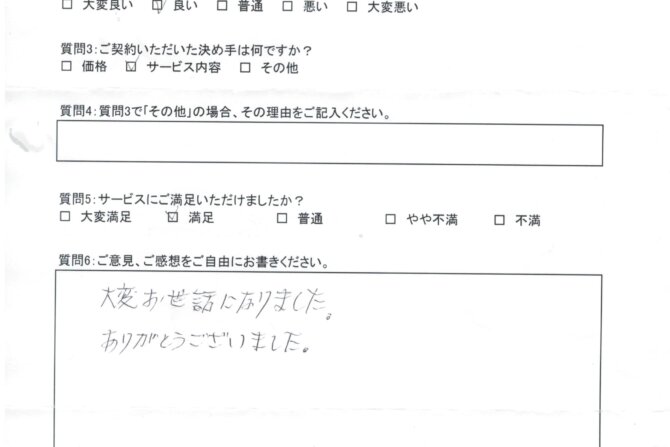 □ 大変良い ☑ 良い □ 普通 □ 悪い □ 大変悪い
質問3:ご契約いただいた決め手は何ですか?
□ 価格 ☑ サービス内容 □ その他
質問4:質問3で「その他」の場合、その理由をご記入ください。
質問5:サービスにご満足いただけましたか?
□ 大変満足 ☑ 満足 □ 普通 □ やや不満 □ 不満
質問6:ご意見、ご感想をご自由にお書きください。
大変お世話になりました。
ありがとうございました。